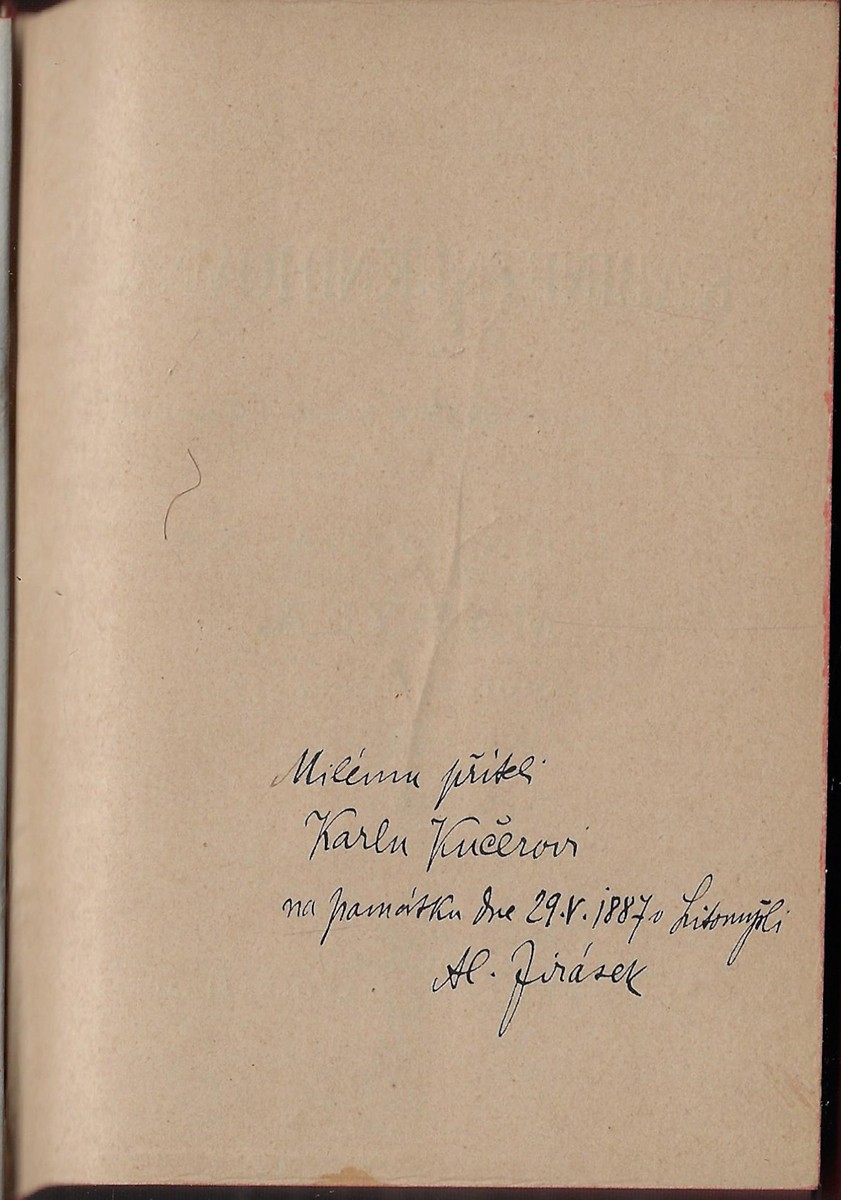 Milému příteli
Karlu Kučerovi
na památku dne 29.V.1887 v Litomyšli
Al. Jirásek